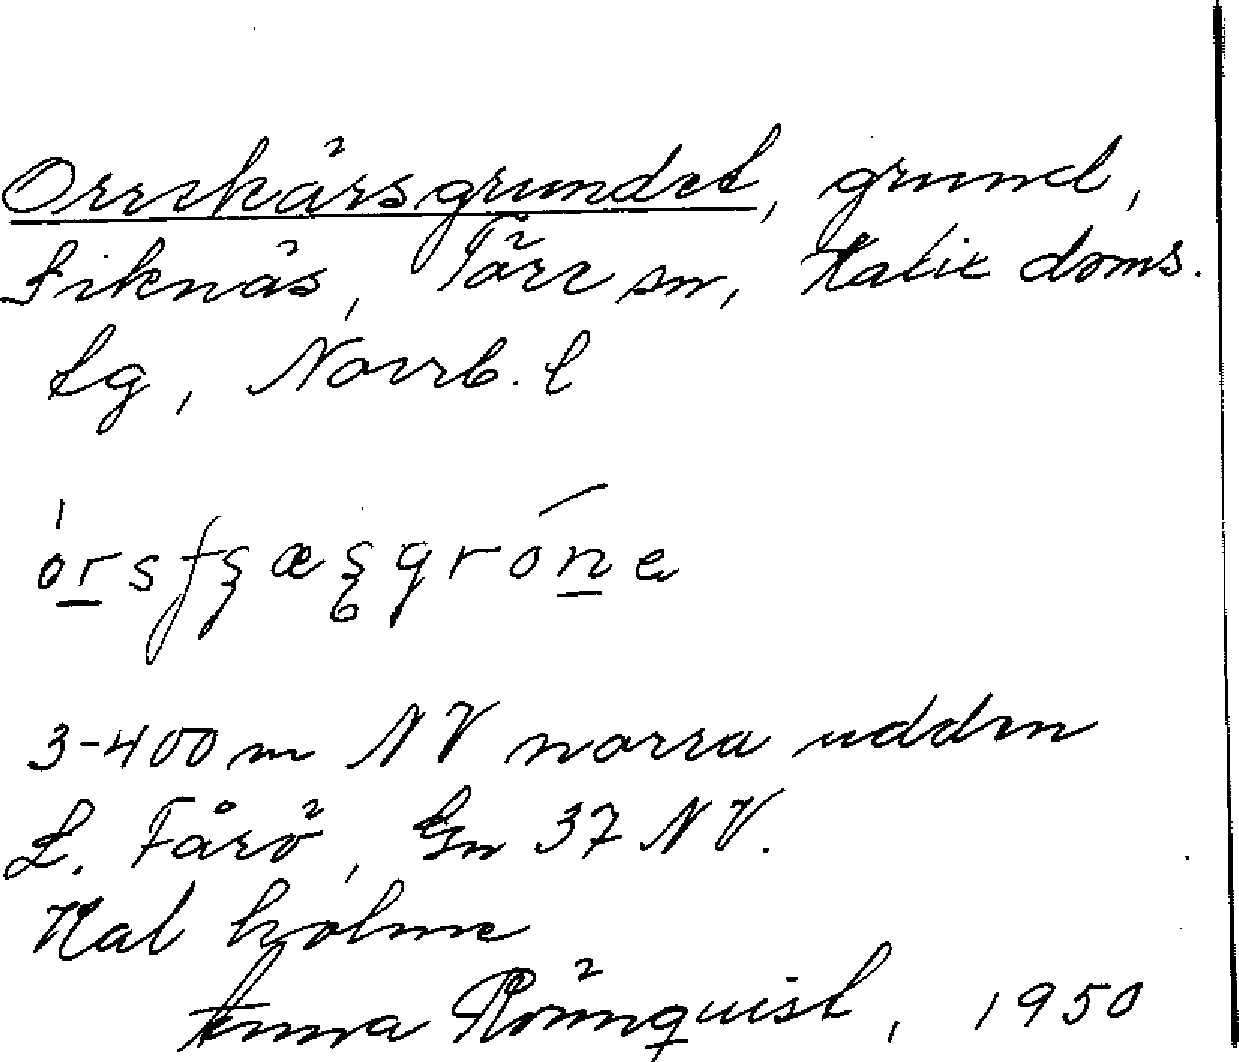 Orrskärsgrundet, grund,
Siknäs, Töre sn, Kalix doms.
tg, Norrb. l
3-400 m NV norra udden
L. Fårö, Gn 37 NV.
Kal holme
Anna Rönnquist, 1950